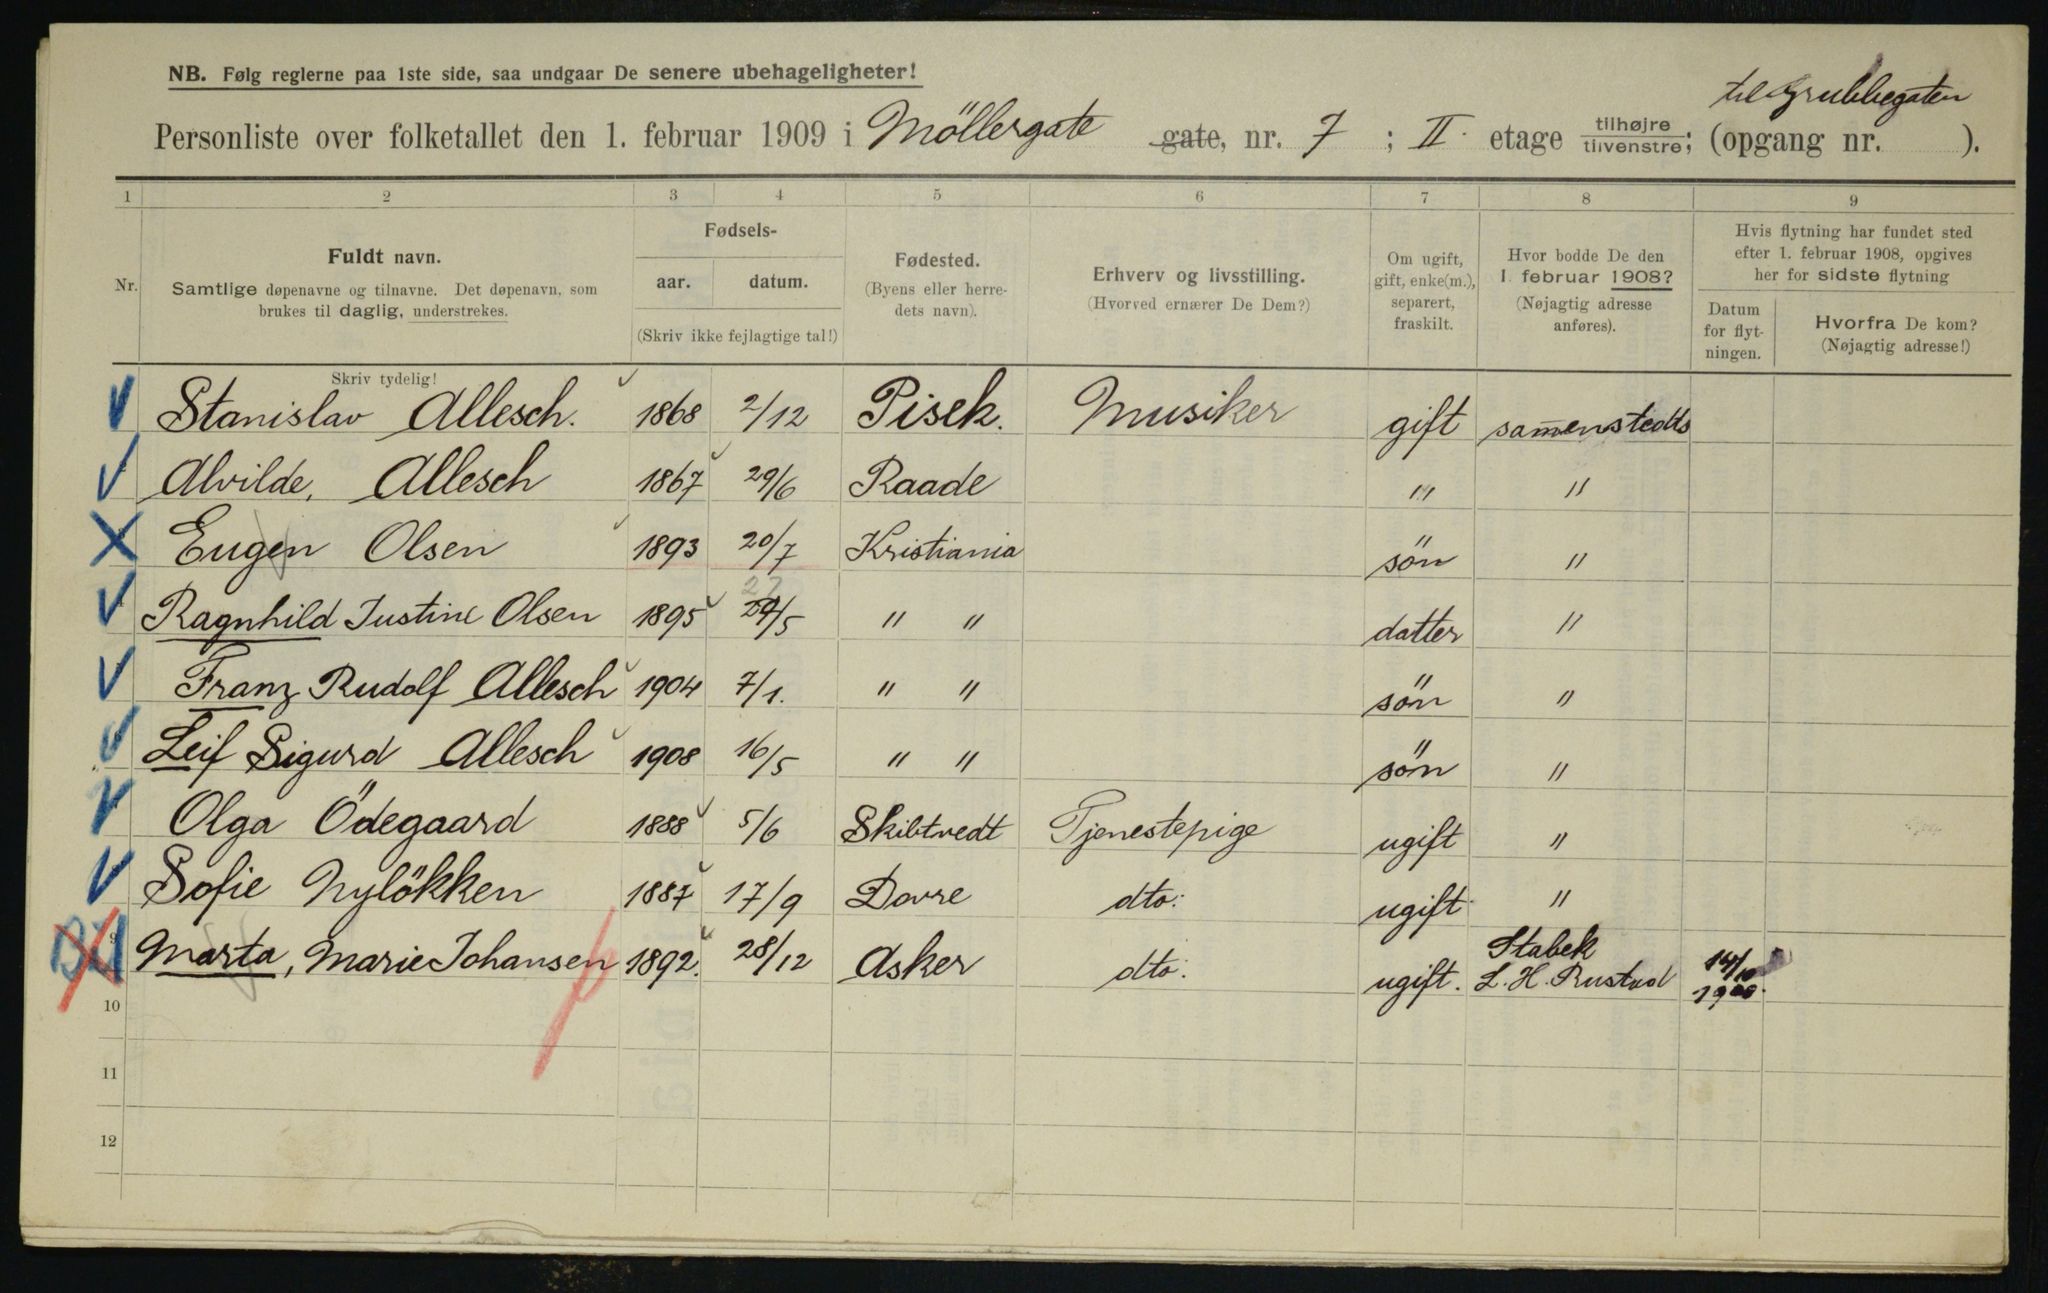 til Grubbegaten
NB. Følg reglerne paa 1ste side, saa undgaar De senere ubehageligheter!
Personliste over folketallet den 1. februar 1909 i Möllergate gate, nr. 7 ; II. etage tilhøjre tilvenstre; (opgang nr. ).
1 2 3 4 5 6 7 8 9
Nr.
Fuldt navn.
Samtlige døpenavne og tilnavne. Det døpenavn, som
brukes til daglig, understrekes.
Skriv tydelig!
Fødsels-
aar. datum.
(Skriv ikke fejlagtige tal!)
Fødested.
(Byens eller herre-
dets navn).
Erhverv og livsstilling.
(Hvorved ernærer De Dem?)
Om ugift,
gift, enke(m.),
separert,
fraskilt.
Hvor bodde De den
1 februar 1908?
(Nøjagtig adresse
anføres).
Hvis flytning har fundet sted
efter 1. februar 1908, opgives
her for sidste flytning
Datum
for flyt-
ningen.
Hvorfra De kom?
(Nøjagtig adresse!)
Stanislav Allesch. 1868 2/12 Pisek. Musiker gift sammenstedts
Alvilde, Allesch 1867 29/6 Raade " "
Eugen Olsen 1893 20/7 Kristiania sön "
Ragnhild Justine Olsen 1895 29/5 " " datter "
Franz Rudolf Allesch 1904 7/1. " " sön "
Leif Sigurd Allesch 1908 16/5 " " sön "
Olga Ödegaard 1888 5/6 Skibtvedt Tjenestepige ugift "
Sofie Nylökken 1887 17/9 Dovre dto: ugift "
9 Marta, Marie Johansen 1892. 28/12 Asker dto: ugift. Stabek L. H. Rustad 14/10 1908.
10
11
12